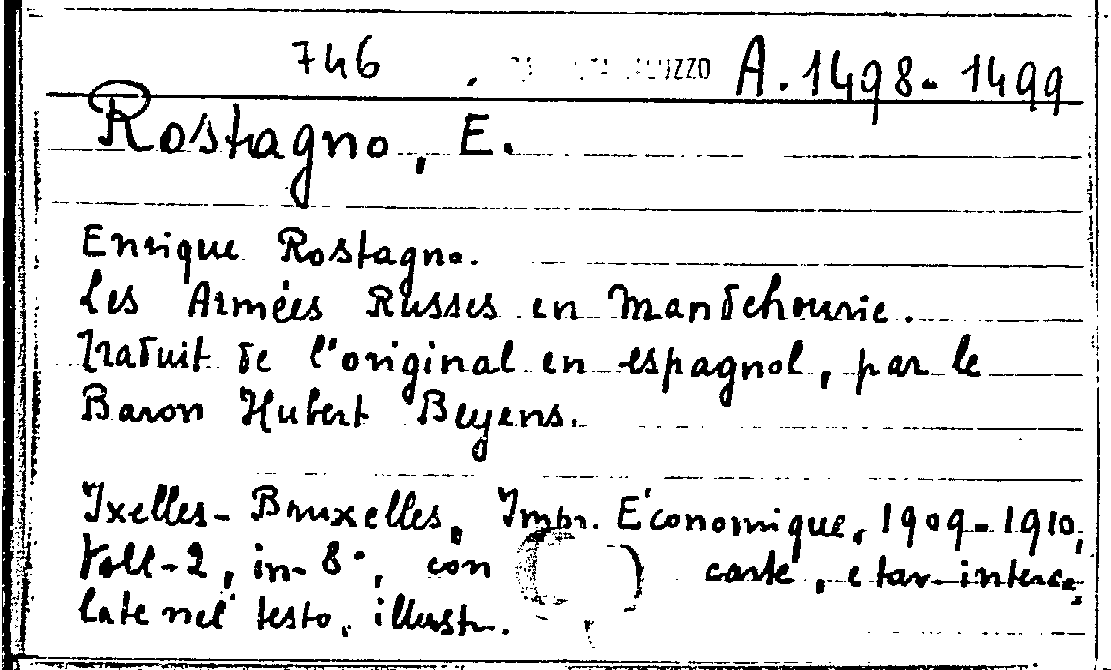 746 A. 1498-1499
Rostagno, E.
Enrique Rostagno.
Les Armées Russes en Mandchourie.
Traduit de l'original en espagnol, par le
Baron Hubert Beyens.
Ixelles-Bruxelles, Impr. Économique, 1909-1910,
Voll-2, in-8°, con carte, e tav. interca
late nel testo, illustr.